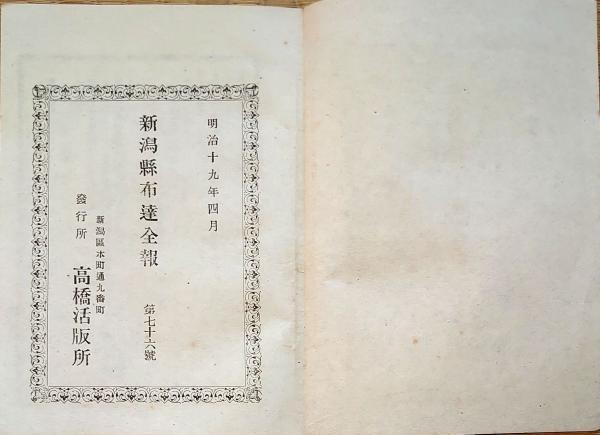 明治十九年四月
新潟縣布達全報 第七十六號
新潟區本町通九番町
發行所 高橋活版所